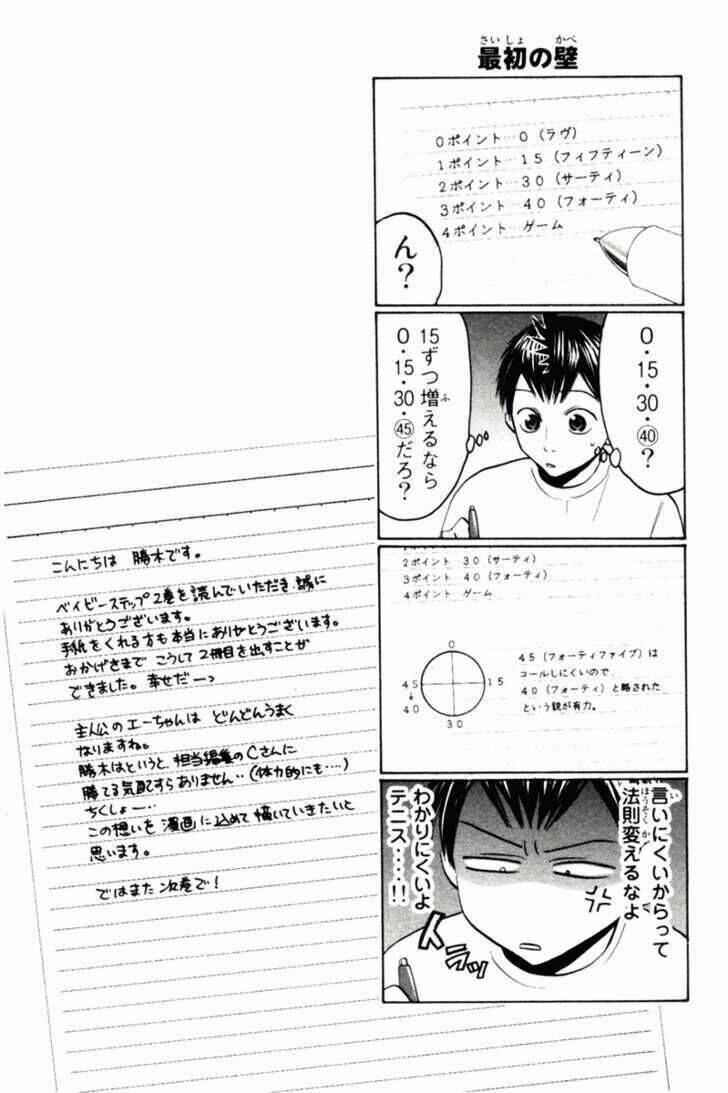 最初の壁
さいしょ かべ
0ポイント…0（ラヴ）
1ポイント…15（フィフティーン）
2ポイント…30（サーティ）
3ポイント…40（フォーティ）
4ポイント…ゲーム
ん？
0・15・30・㊵？
15ずつ増えるなら
ふ
0・15・30・㊺だろ？
2ポイント 30（サーティ）
3ポイント 40（フォーティ）
4ポイント ゲーム
0
15
30
45
↓
40
45（フォーティファイブ）は
コールしにくいので、
40（フォーティ）と略された
という説が有力。
言いにくいからって
い
法則変えるなよ
ほうそくか
わかりにくいよ
テニス……!!
イラッ
こんにちは 勝木です。
ベイビーステップ2巻を読んでいただき、誠に
ありがとうございます。
手紙をくれる方も本当にありがとうございます。
おかげさまで こうして2冊目を出すことが
できました。幸せだーっ
主人公のエーちゃんは どんどんうまく
なりますね。
勝木はというと、担当編集のCさんに
勝てる気配すらありません‥（体力的にも…）
ちくしょー…
この想いを漫画に込めて描いていきたいと
思います。
ではまた次巻で！